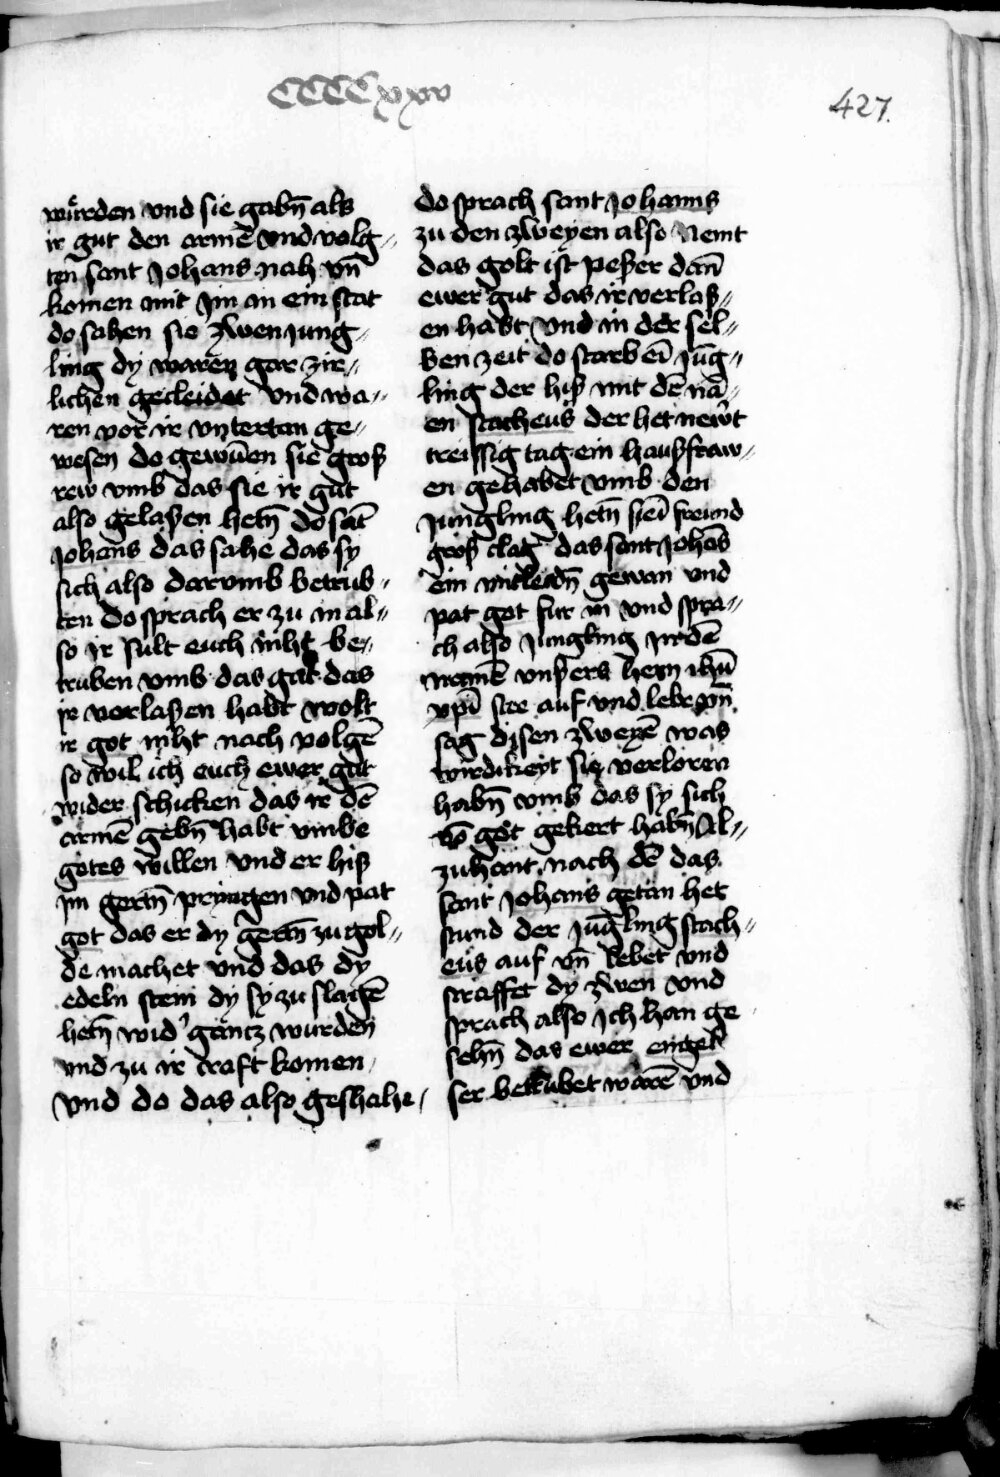 CCCCxxv
427.
würden vnd sie gabn̄ als
ir gut den armē vnd volg⸗
ten sant Johans nah vn̄
komen mit Jm an ein stat
do sahen sie zwen jung⸗
ling dy waren gar zir⸗
lichen gecleidet vnd wa⸗
ren vor ir vntertan ge⸗
wesen do gewūen sie groß
rew vmb das sie ir gut
also gelaßen hetn̄ do sāt
Johans das sahe das sy
sich also darvmb betrub⸗
ten do sprach er zu in al⸗
so ir sult euch niht be⸗
truben vmb das gut das
ir verlaßen habt wolt
ir got niht nach volgē
so wil ich euch ewer gut
wider schicken das ir dē
armē gebn̄ habt vmbe
gotes willen vnd er hiß
Jm gertn̄ pringen vnd pat
got das er dy gertn̄ zu gol⸗
de machet vnd das dy
edeln stein dy sy zu slagē
hetn̄ wid' gantz wurden
vnd zu ir craft komen
vnd do das also geshahe
do sprach sant Johanns
zu den zweyen also Nemt
das golt ist peßer dan̄
ewer gut das ir verlaß⸗
en habt vnd in der sel⸗
ben zeit do starb eī Jūg⸗
ling der hiß mit dē nā⸗
en stacheus der het newt
treissig tag ein haußfraw⸗
en gehabet vmb den
Jungling hetn̄ sieī freund
groß clag das sant Johās
ein mitleidn̄ gewan vnd
pat got fur in vnd spra⸗
ch also Jungling Jn dē
namē vnßers hern ihū
xpī ste auf vnd lebe vn̄
sag disen zweyē was
wirdikeyt sie verloren
habn̄ vmb das sy sich
vō got gekert habn̄ Al⸗
zuhant nach dē das
sant Johans getan het
stund der Jūgling stach⸗
eus auf vn̄ lebet vnd
straffet dy zwen vnd
sprach also Jch han ge
sehn̄ das ewer engel
ser betrubet warē vnd